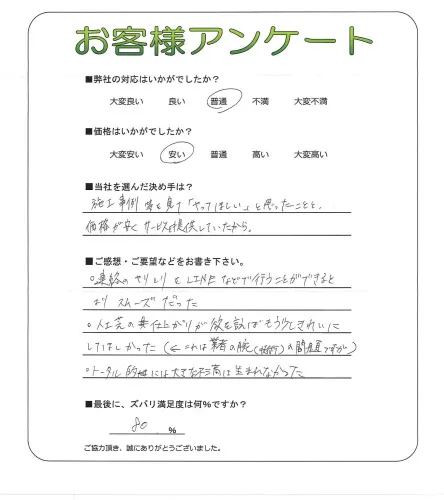 お客様アンケート
■弊社の対応はいかがでしたか？
大変良い 良い 普通 不満 大変不満
■価格はいかがでしたか？
大変安い 安い 普通 高い 大変高い
■当社を選んだ決め手は？
施工事例 等を見て「やってほしい」と思ったことと、
価格が安くサービスを提供していたから。
■ご感想・ご要望などをお書き下さい。
○連絡のやりとりをLINEなどで行うことができると
よりスムーズだった
・人工芝の 仕上がりが欲を言えばもう少しきれいに
してほしかった（←これは業者の腕 の問題ですが）
・トータル的には大きな不満は生まれなかった
■最後に、ズバリ満足度は何％ですか？
80 ％
ご協力頂き、誠にありがとうございました。